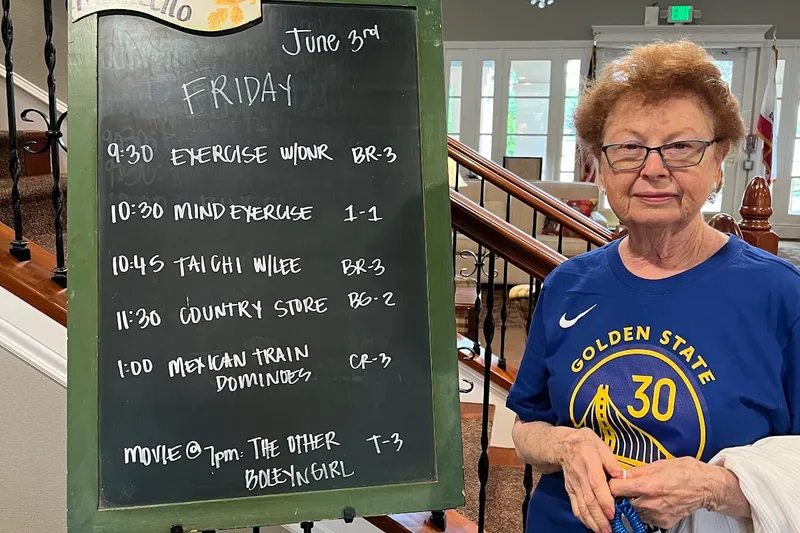 June 3rd
FRIDAY
9:30 EXERCISE W/ONR BR-3
10:30 MIND EXERCISE 1-1
10:45 TAICHI W/LEE BR-3
11:30 COUNTRY STORE BG-2
1:00 MEXICAN TRAIN DOMINOES CR-3
MOVIE @ 7pm: THE OTHER BOLEYN GIRL T-3
EXIT
GOLDEN STATE
30